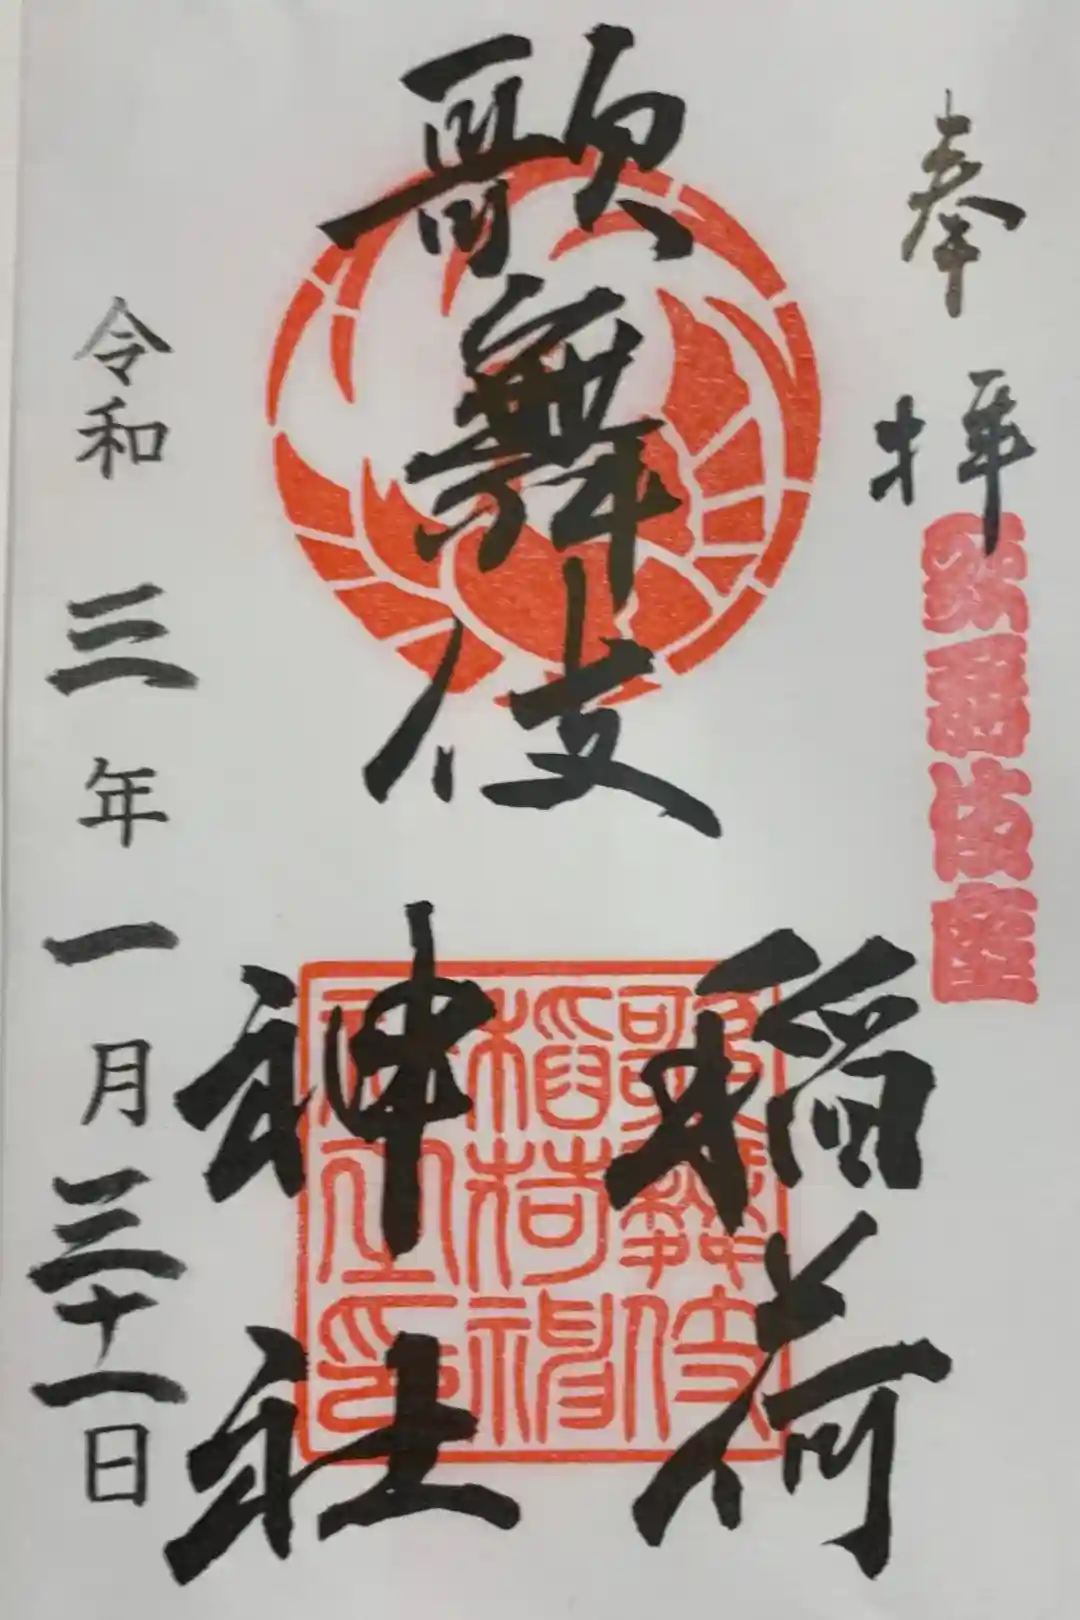 奉拝
歌舞伎座
歌舞伎
稲荷
神社
歌舞伎
稲荷神
社之印
令和三年一月三十一日